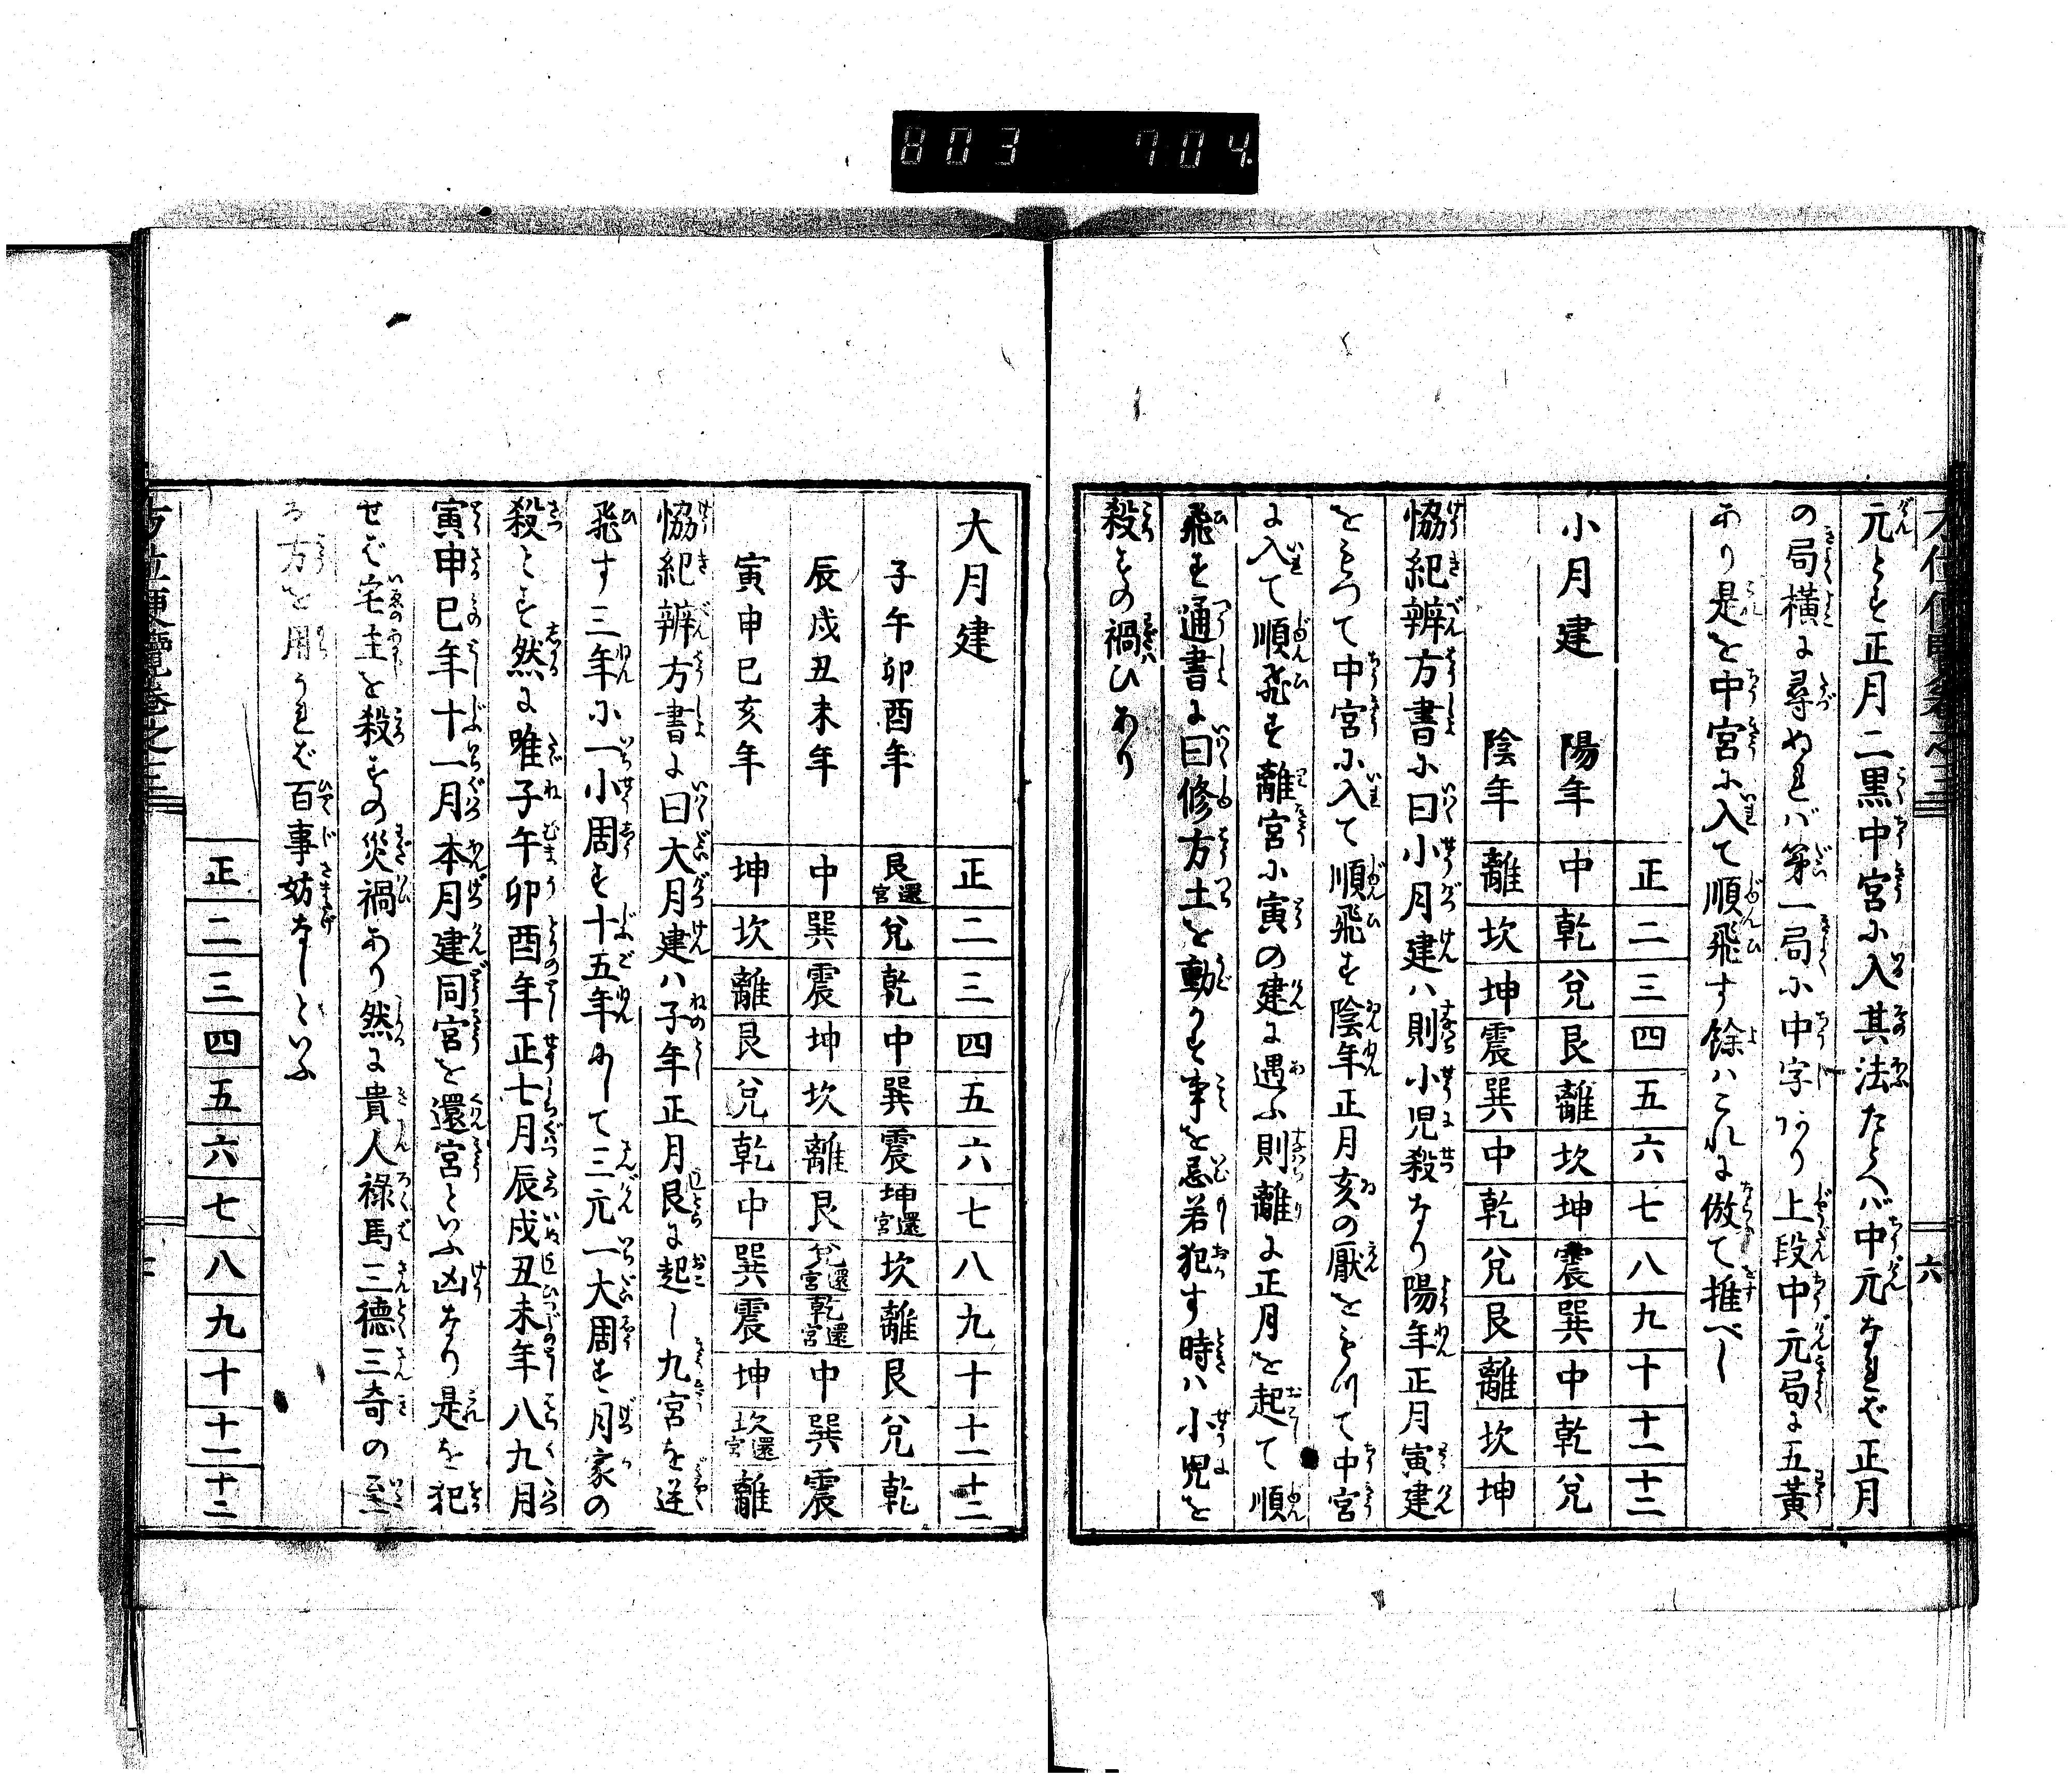 803 704
六
元とす正月二黒中宮に入其法たとへば中元なれば正月
の局横に尋ぬれば第一局に中字あり上段中元局に五黄
あり是を中宮に入て順飛す餘はこれに倣て推べし
正 二 三 四 五 六 七 八 九 十 十一 十二
小月建 陽年 中 乾 兌 艮 離 坎 坤 震 巽 中 乾 兌
陰年 離 坎 坤 震 巽 中 乾 兌 艮 離 坎 坤
協紀辨方書に曰小月建ハ則小児殺なり陽年正月寅建
をもつて中宮に入て順飛す陰年正月亥の厭をもつて中宮
に入て順飛す離宮に寅の建に遇ふ則離に正月を起て順
飛す通書に曰修方土を動かす事を忌若犯す時ハ小児を
殺すの禍ひあり
大月建 正 二 三 四 五 六 七 八 九 十 十一 十二
子午卯酉年 艮還宮 兌 乾 中 巽 震 坤還宮 坎 離 艮 兌 乾
辰戌丑未年 中 巽 震 坤 坎 離 艮 兌還宮 乾還宮 中 巽 震
寅申巳亥年 坤 坎 離 艮 兌 乾 中 巽 震 坤 坎還宮 離
協紀辨方書に曰大月建ハ子年正月艮に起し九宮を逆
飛す三年に一小周す十五年にして三元一大周す月家の
殺とす然に唯子午卯酉年正七月辰戌丑未年八九月
寅申巳年十一月本月建同宮を還宮といふ凶なり是を犯
せば宅主を殺すの災禍あり然に貴人祿馬三徳三奇の至
る方を用うれば百事妨なしといふ
正 二 三 四 五 六 七 八 九 十 十一 十二
方位便覽巻之三